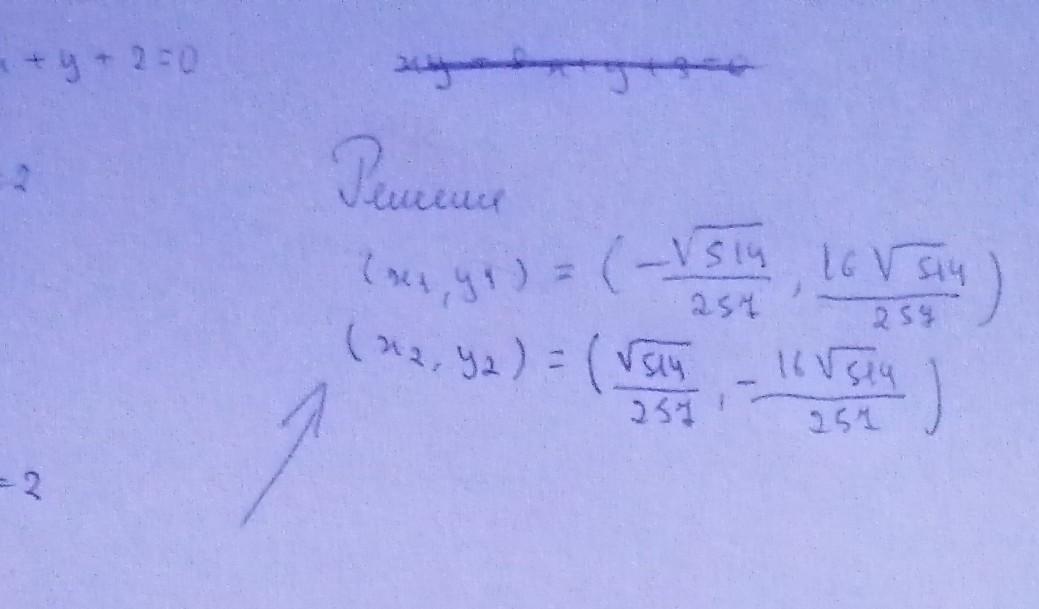 + y + 2 = 0
2
Решение
(x₁, y₁) = (-√514/257, 16√514/257)
(x₂, y₂) = (√514/257, -16√514/257)
= 2